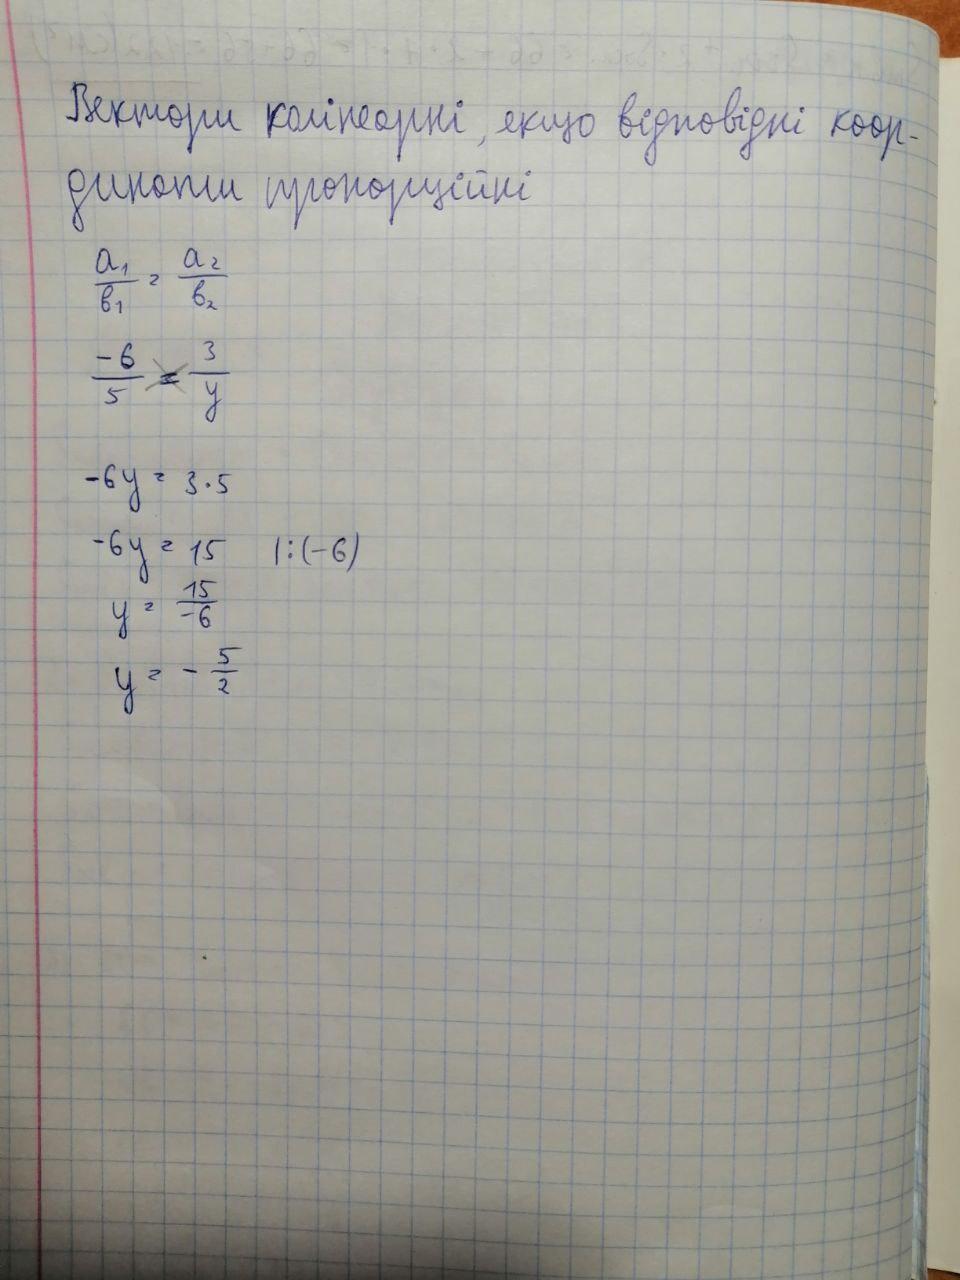 Вектори колінеарні, якщо відповідні коор-
динати пропорційні
a₁/b₁ = a₂/b₂
-6/5 = 3/y
-6y = 3·5
-6y = 15 |:(-6)
y = 15/-6
y = -5/2